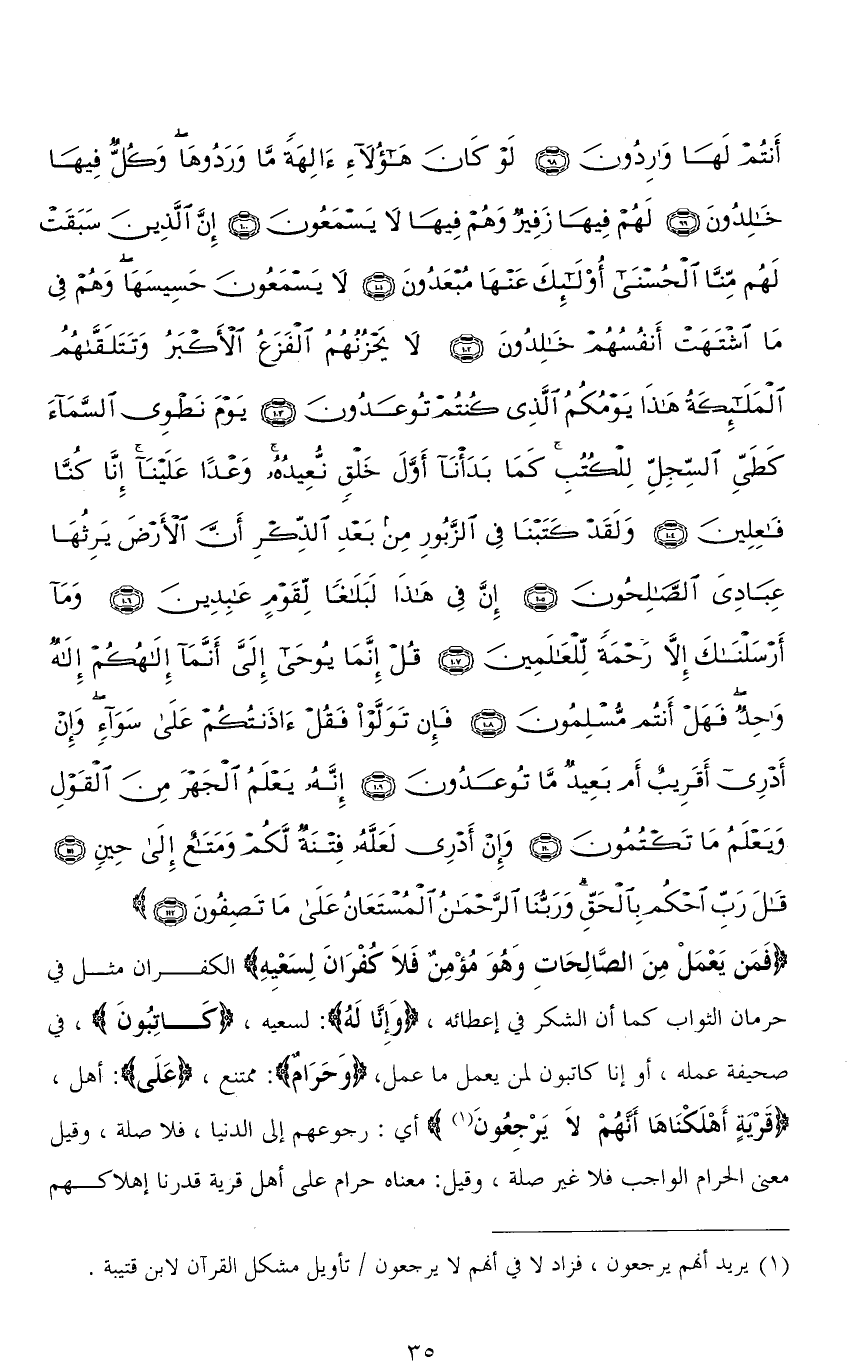 أَنتُمْ لَهَا وَٰرِدُونَ ﴿٩٨﴾ لَوْ كَانَ هَٰٓؤُلَآءِ ءَالِهَةً مَّا وَرَدُوهَا ۖ وَكُلٌّ فِيهَا
خَٰلِدُونَ ﴿٩٩﴾ لَهُمْ فِيهَا زَفِيرٌ وَهُمْ فِيهَا لَا يَسْمَعُونَ ﴿١٠٠﴾ إِنَّ ٱلَّذِينَ سَبَقَتْ
لَهُم مِّنَّا ٱلْحُسْنَىٰٓ أُو۟لَٰٓئِكَ عَنْهَا مُبْعَدُونَ ﴿١٠١﴾ لَا يَسْمَعُونَ حَسِيسَهَا ۖ وَهُمْ فِى
مَا ٱشْتَهَتْ أَنفُسُهُمْ خَٰلِدُونَ ﴿١٠٢﴾ لَا يَحْزُنُهُمُ ٱلْفَزَعُ ٱلْأَكْبَرُ وَتَتَلَقَّىٰهُمُ
ٱلْمَلَٰٓئِكَةُ هَٰذَا يَوْمُكُمُ ٱلَّذِى كُنتُمْ تُوعَدُونَ ﴿١٠٣﴾ يَوْمَ نَطْوِى ٱلسَّمَآءَ
كَطَىِّ ٱلسِّجِلِّ لِلْكُتُبِ ۚ كَمَا بَدَأْنَآ أَوَّلَ خَلْقٍ نُّعِيدُهُۥ ۚ وَعْدًا عَلَيْنَآ ۚ إِنَّا كُنَّا
فَٰعِلِينَ ﴿١٠٤﴾ وَلَقَدْ كَتَبْنَا فِى ٱلزَّبُورِ مِنۢ بَعْدِ ٱلذِّكْرِ أَنَّ ٱلْأَرْضَ يَرِثُهَا
عِبَادِىَ ٱلصَّٰلِحُونَ ﴿١٠٥﴾ إِنَّ فِى هَٰذَا لَبَلَٰغًا لِّقَوْمٍ عَٰبِدِينَ ﴿١٠٦﴾ وَمَآ
أَرْسَلْنَٰكَ إِلَّا رَحْمَةً لِّلْعَٰلَمِينَ ﴿١٠٧﴾ قُلْ إِنَّمَا يُوحَىٰٓ إِلَىَّ أَنَّمَآ إِلَٰهُكُمْ إِلَٰهٌ
وَٰحِدٌ ۖ فَهَلْ أَنتُم مُّسْلِمُونَ ﴿١٠٨﴾ فَإِن تَوَلَّوْا۟ فَقُلْ ءَاذَنتُكُمْ عَلَىٰ سَوَآءٍ ۖ وَإِنْ
أَدْرِىٓ أَقَرِيبٌ أَم بَعِيدٌ مَّا تُوعَدُونَ ﴿١٠٩﴾ إِنَّهُۥ يَعْلَمُ ٱلْجَهْرَ مِنَ ٱلْقَوْلِ
وَيَعْلَمُ مَا تَكْتُمُونَ ﴿١١٠﴾ وَإِنْ أَدْرِى لَعَلَّهُۥ فِتْنَةٌ لَّكُمْ وَمَتَٰعٌ إِلَىٰ حِينٍ ﴿١١١﴾
قَٰلَ رَبِّ ٱحْكُم بِٱلْحَقِّ ۗ وَرَبُّنَا ٱلرَّحْمَٰنُ ٱلْمُسْتَعَانُ عَلَىٰ مَا تَصِفُونَ ﴿١١٢﴾ ﴾
﴿فَمَن يَعْمَلْ مِنَ الصَّالِحَاتِ وَهُوَ مُؤْمِنٌ فَلاَ كُفْرَانَ لِسَعْيِهِ﴾ الكفران مثل في
حرمان الثواب كما أن الشكر في إعطائه ، ﴿وَإِنَّا لَهُ﴾: لسعيه ، ﴿كَاتِبُونَ ﴾ ، في
صحيفة عمله ، أو إنا كاتبون لمن يعمل ما عمل، ﴿وَحَرَامٌ﴾: ممتنع ، ﴿عَلَى﴾: أهل ،
﴿قَرْيَةٍ أَهْلَكْنَاهَا أَنَّهُمْ لاَ يَرْجِعُونَ(١) ﴾ أي : رجوعهم إلى الدنيا ، فلا صلة ، وقيل
معنى الحرام الواجب فلا غير صلة ، وقيل: معناه حرام على أهل قرية قدرنا إهلاكهم
(١) يريد أنهم يرجعون ، فزاد لا في أنهم لا يرجعون / تأويل مشكل القرآن لابن قتيبة .
٣٥